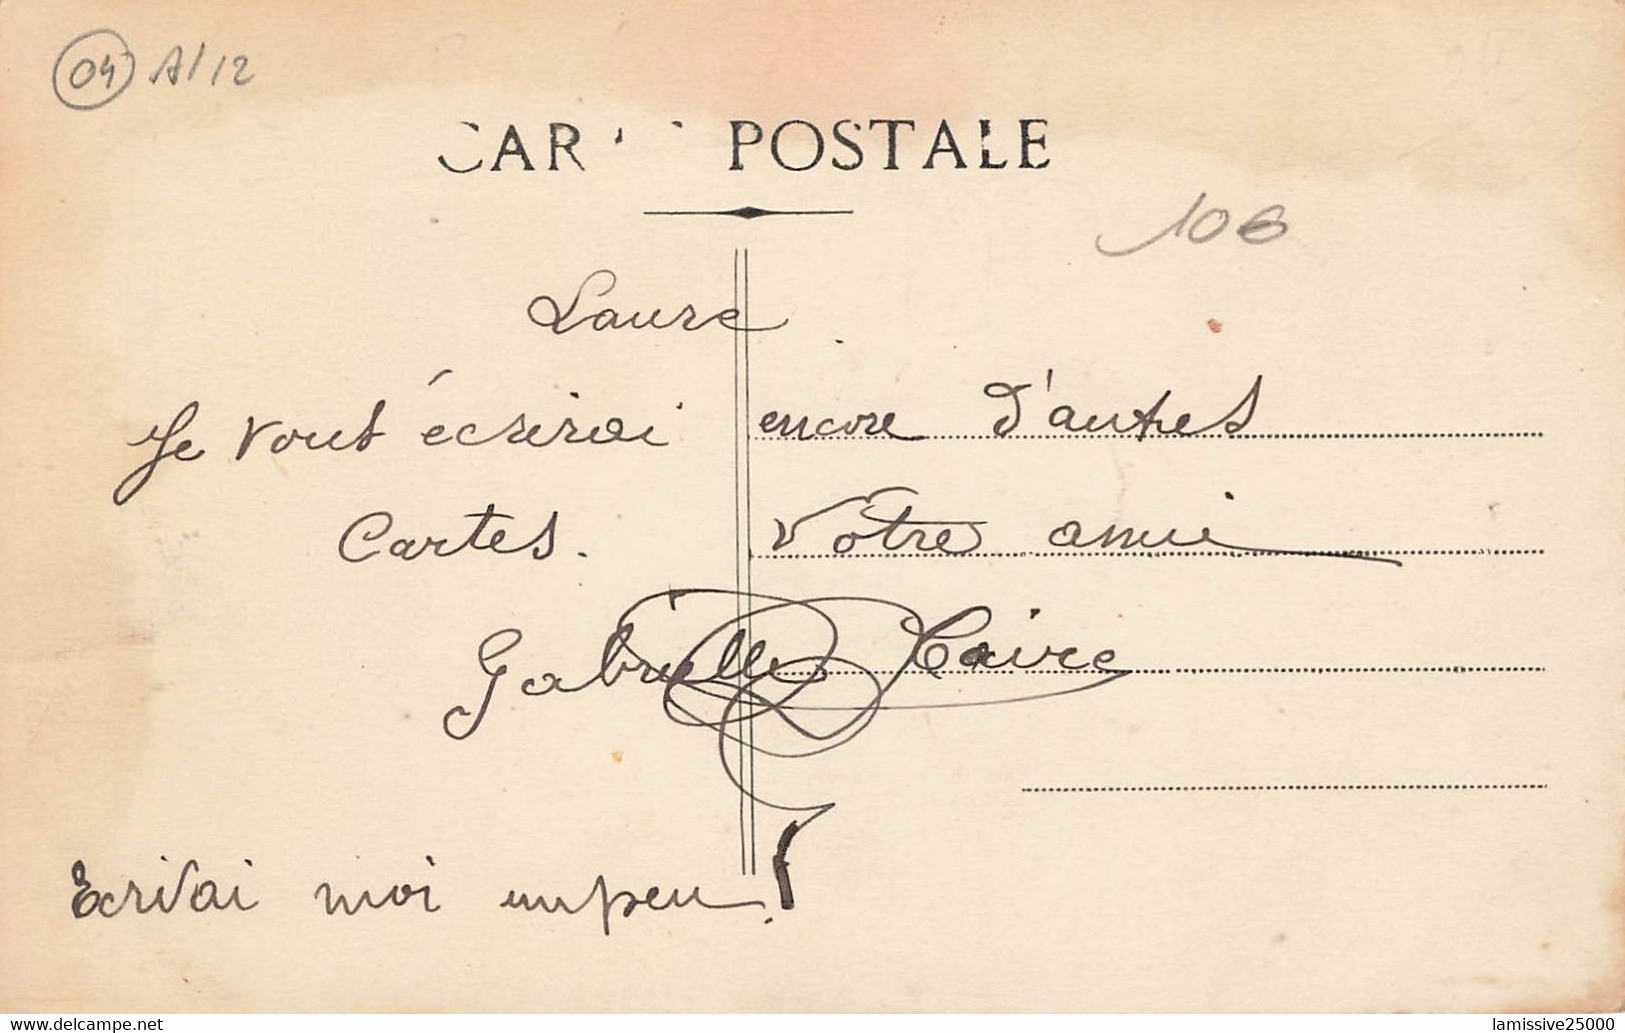 04 A/12
CAR POSTALE
10€
Laure
Je vous écrirai encore d'autres
Cartes. Votre amie
Gabrielle Caire
Ecrivai moi un peu !
lamissive25000